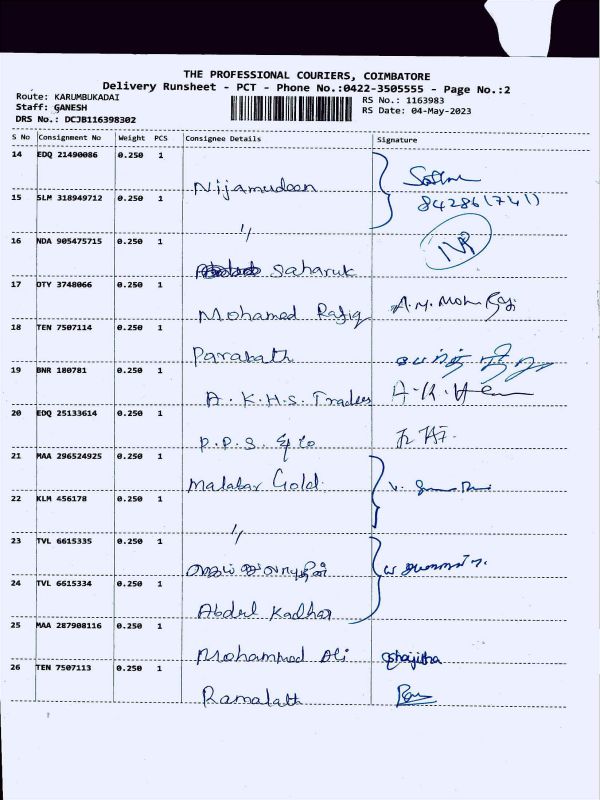 THE PROFESSIONAL COURIERS, COIMBATORE
Delivery Runsheet - PCT - Phone No.:0422-3505555 - Page No.:2
Route: KARUMBUKADAI
Staff: GANESH
DRS No.: DCJB116398302
RS No.: 1163983
RS Date: 04-May-2023
S No Consignment No Weight PCS Consignee Details Signature
14 EDQ 21490086 0.250 1
Nijamudeen
15 SLM 318949712 0.250 1 84286(741)
〃
16 NDA 905475715 0.250 1
Saharuk
17 OTY 3748066 0.250 1
Mohamed Rafiq
18 TEN 7507114 0.250 1
Parakath
19 BNR 180781 0.250 1
A.K.H.S. Traders
20 EDQ 25133614 0.250 1
P.P.S. & Co
21 MAA 296524925 0.250 1
Malabar Gold
22 KLM 456178 0.250 1
〃
23 TVL 6615335 0.250 1
24 TVL 6615334 0.250 1
Abdul Kadhar
25 MAA 287908116 0.250 1
Mohammed Ali
26 TEN 7507113 0.250 1
Ramalath